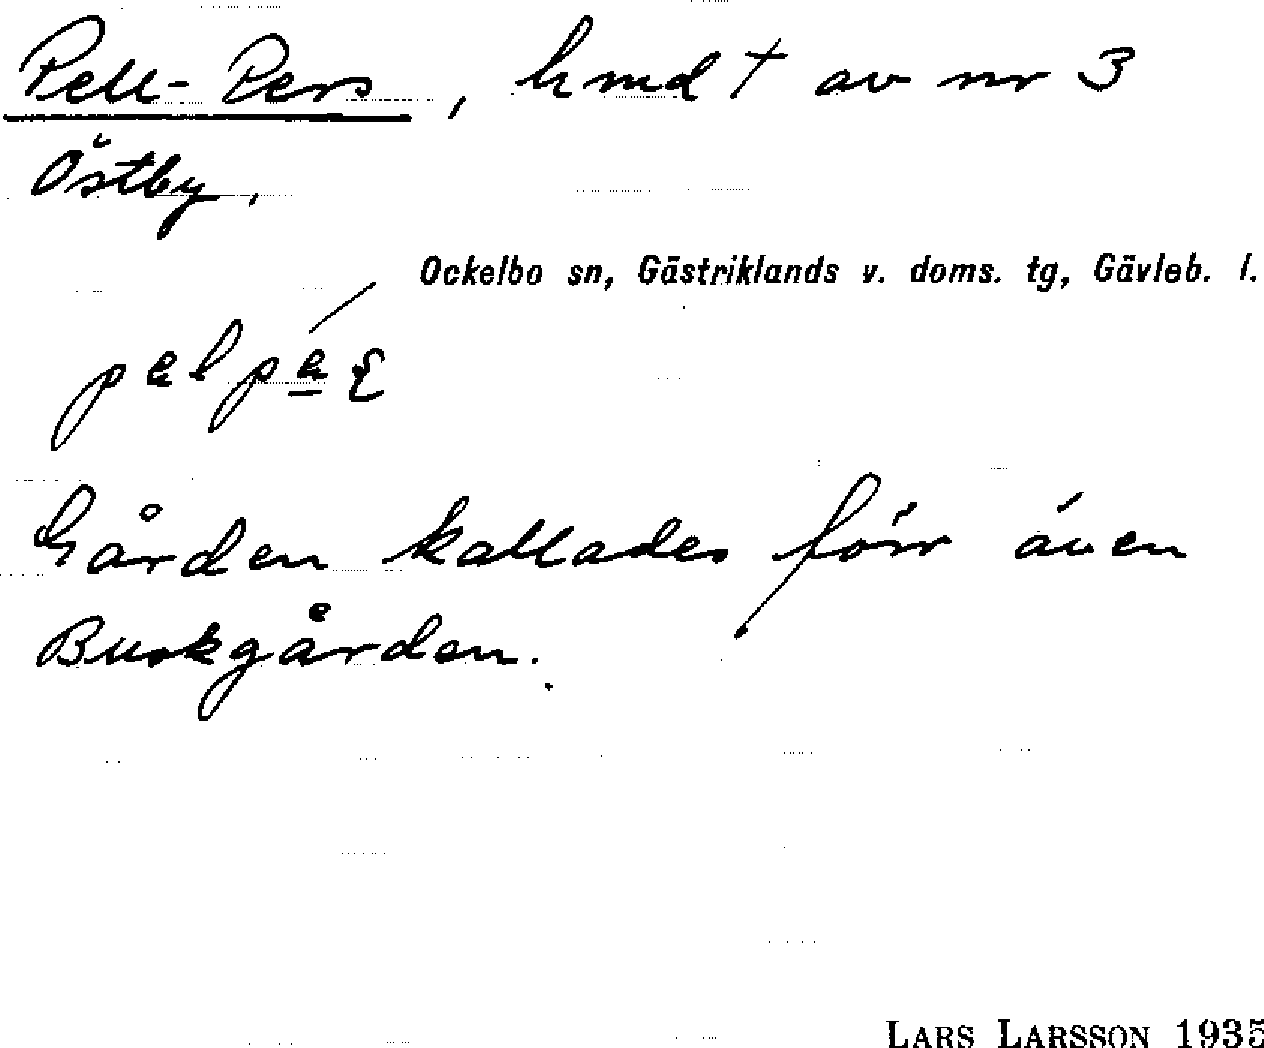 Pell-Pers, hmd † av nr 3
Östby.
Ockelbo sn, Gästriklands v. doms. tg, Gävleb. l.
Gården kallades förr även
Buskgården.
LARS LARSSON 1935